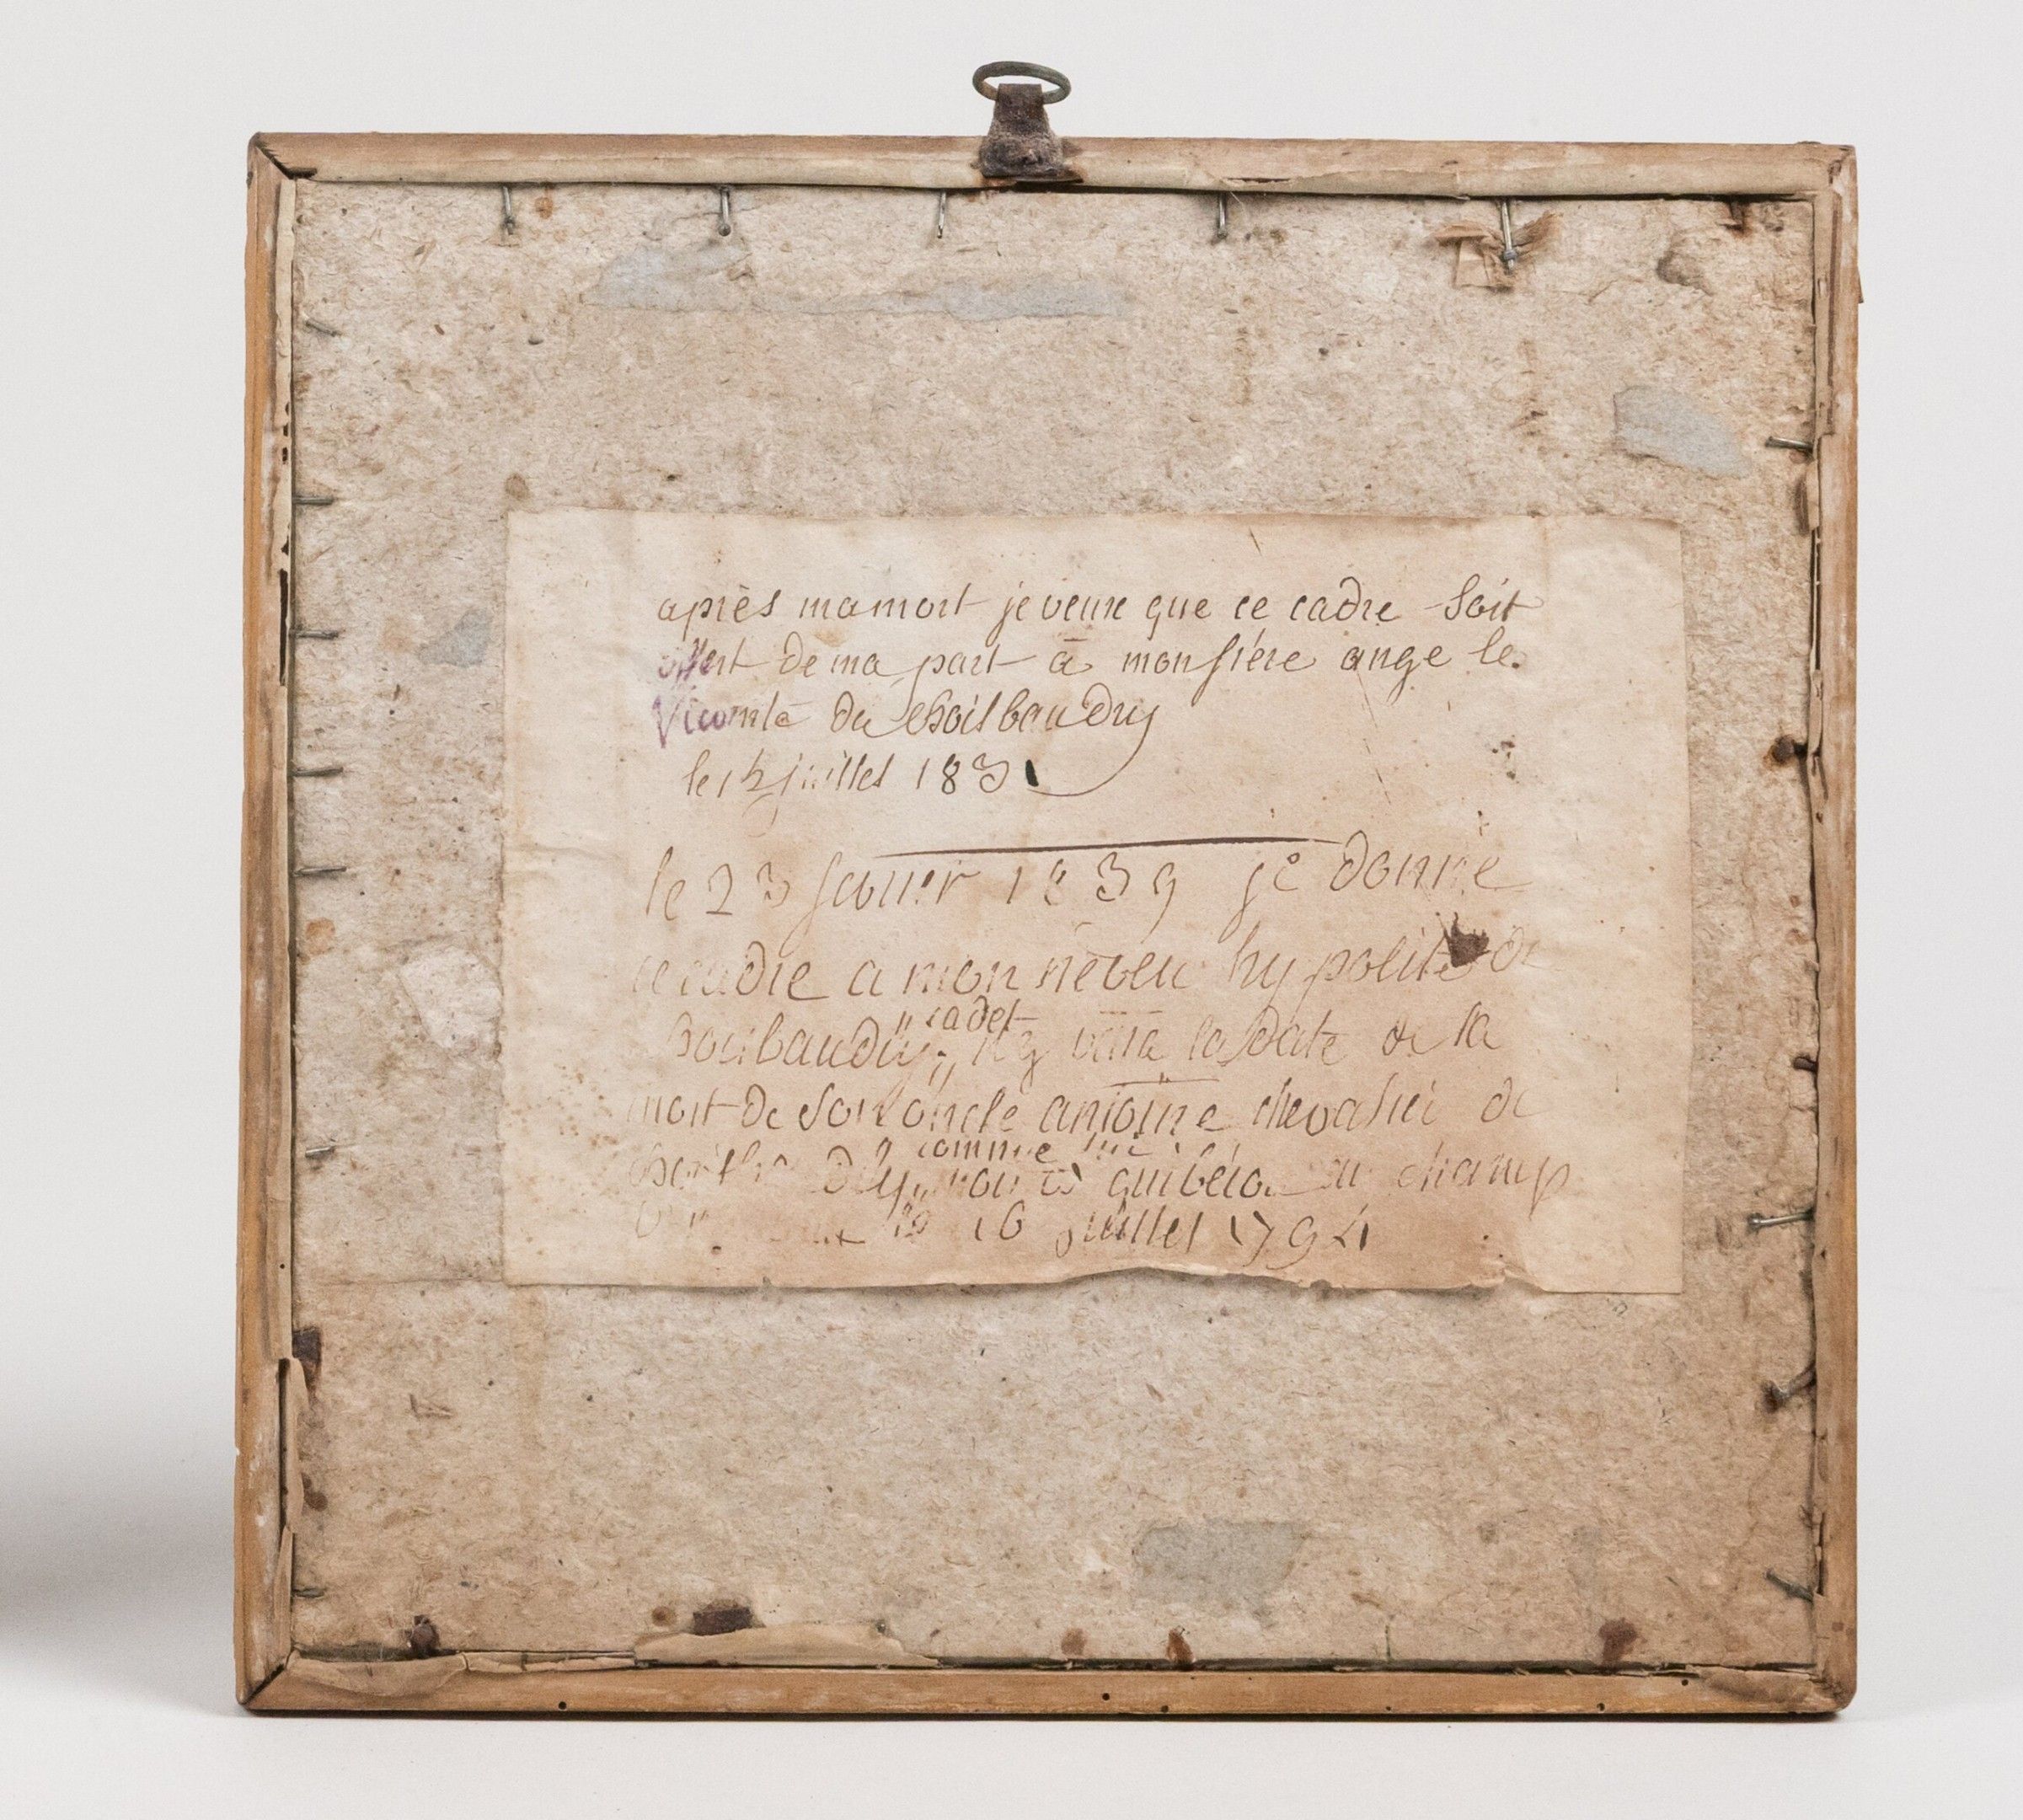 après ma mort je veux que ce cadre soit
offert de ma part à mon frére ange le
Vicomte du boisbaudry
le 12 juillet 1831
le 23 fevrier 1839 je donne
ce cadre a mon néveu hypolite de
boisbaudry
"cadet
la date de la
mort de son oncle antoine chevalier de
comme lui
quibéron au champ
16 juillet 1794